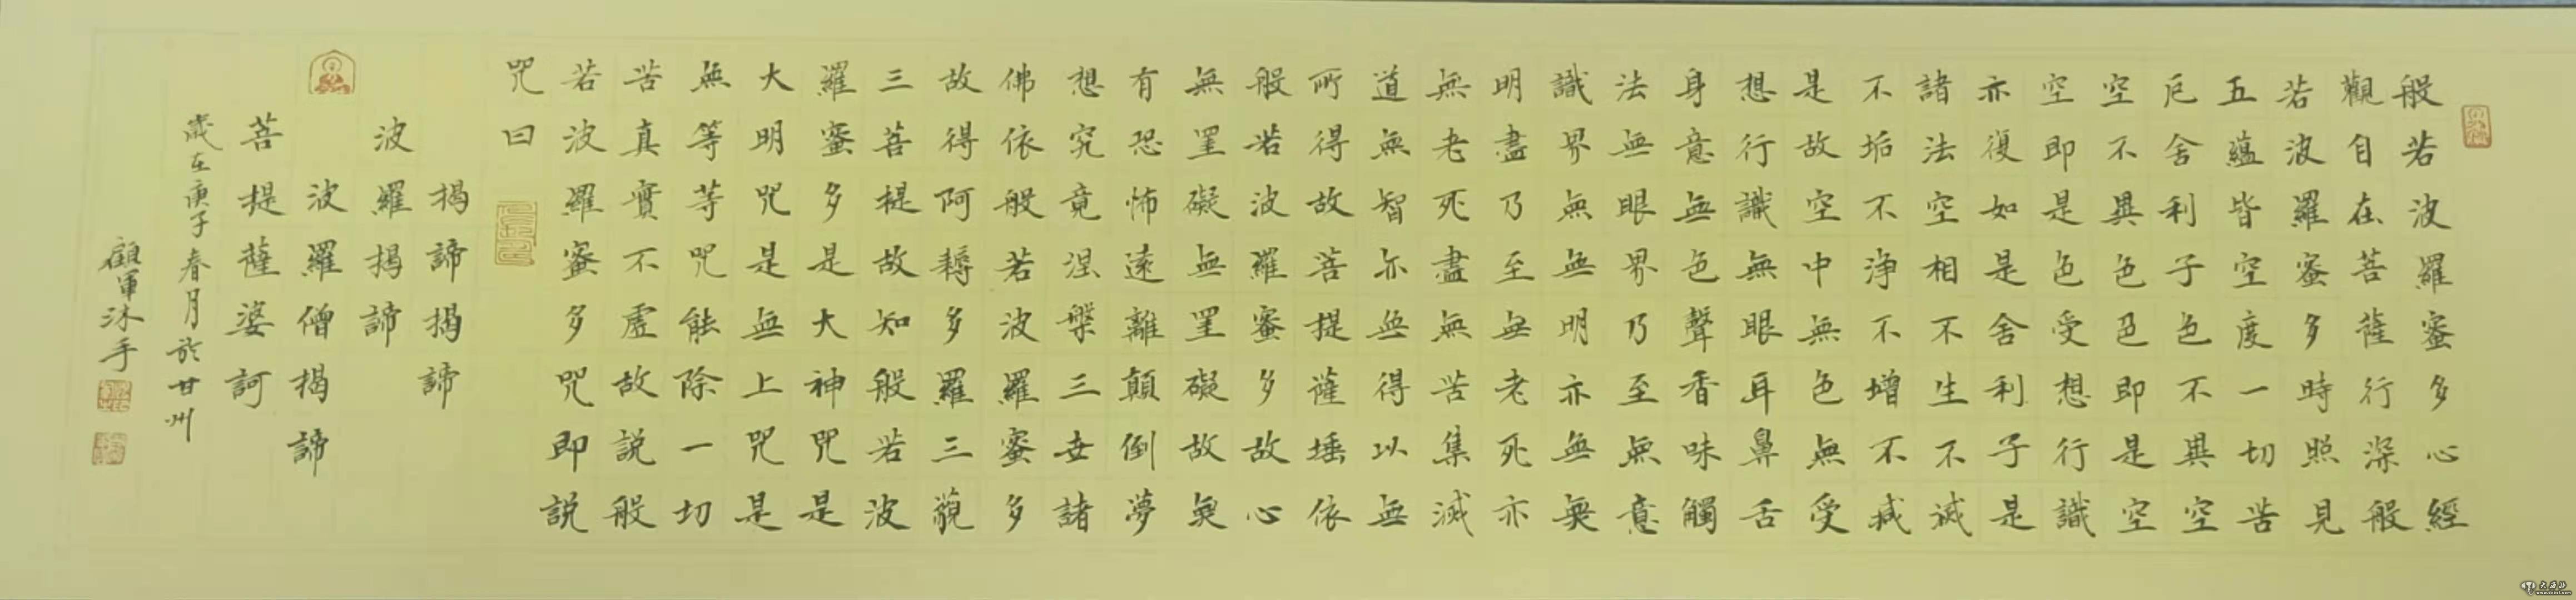 般若波羅蜜多心經
觀自在菩薩行深般
若波羅蜜多時照見
五蘊皆空度一切苦
厄舍利子色不異空
空不異色色即是空
空即是色受想行識
亦復如是舍利子是
諸法空相不生不滅
不垢不淨不增不減
是故空中無色無受
想行識無眼耳鼻舌
身意無色聲香味觸
法無眼界乃至無意
識界無無明亦無無
明盡乃至無老死亦
無老死盡無苦集滅
道無智亦無得以無
所得故菩提薩埵依
般若波羅蜜多故心
無罣礙無罣礙故無
有恐怖遠離顛倒夢
想究竟涅槃三世諸
佛依般若波羅蜜多
故得阿耨多羅三藐
三菩提故知般若波
羅蜜多是大神咒是
大明咒是無上咒是
無等等咒能除一切
苦真實不虛故説般
若波羅蜜多咒即説
咒曰
揭諦揭諦
波羅揭諦
波羅僧揭諦
菩提薩婆訶
歲在庚子春月於甘州
顧軍沐手